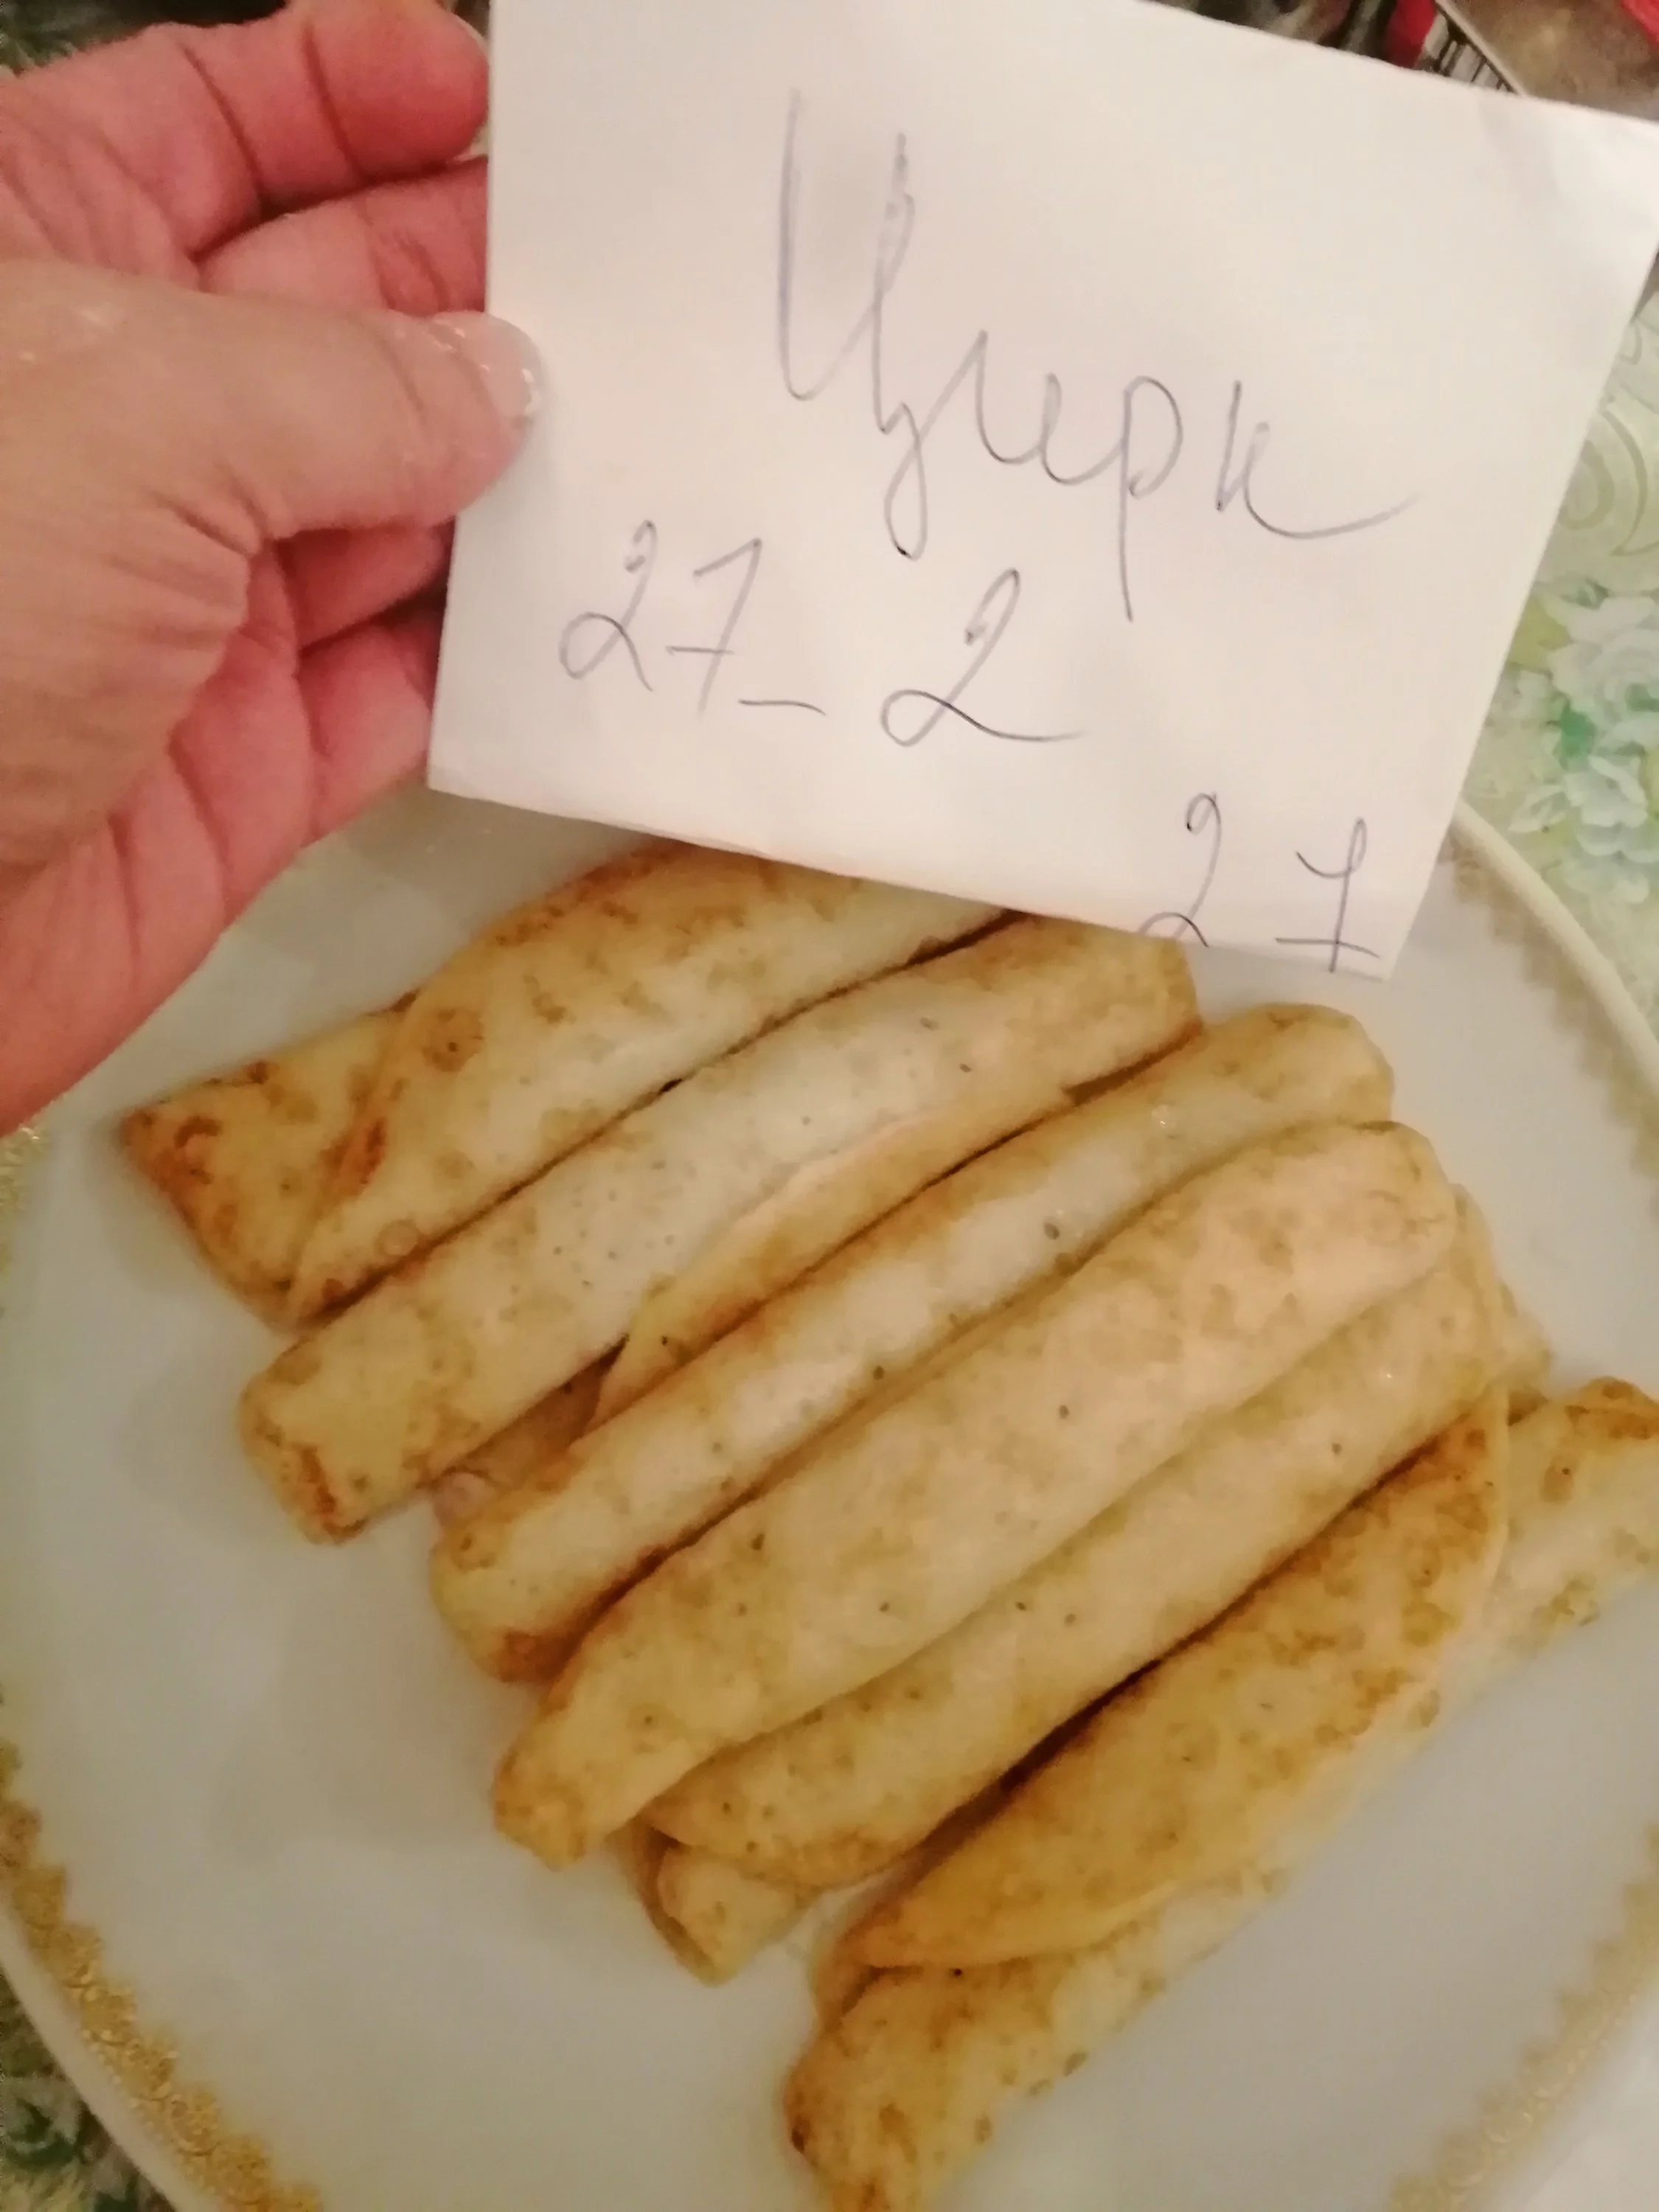 Цирк
27-2
27